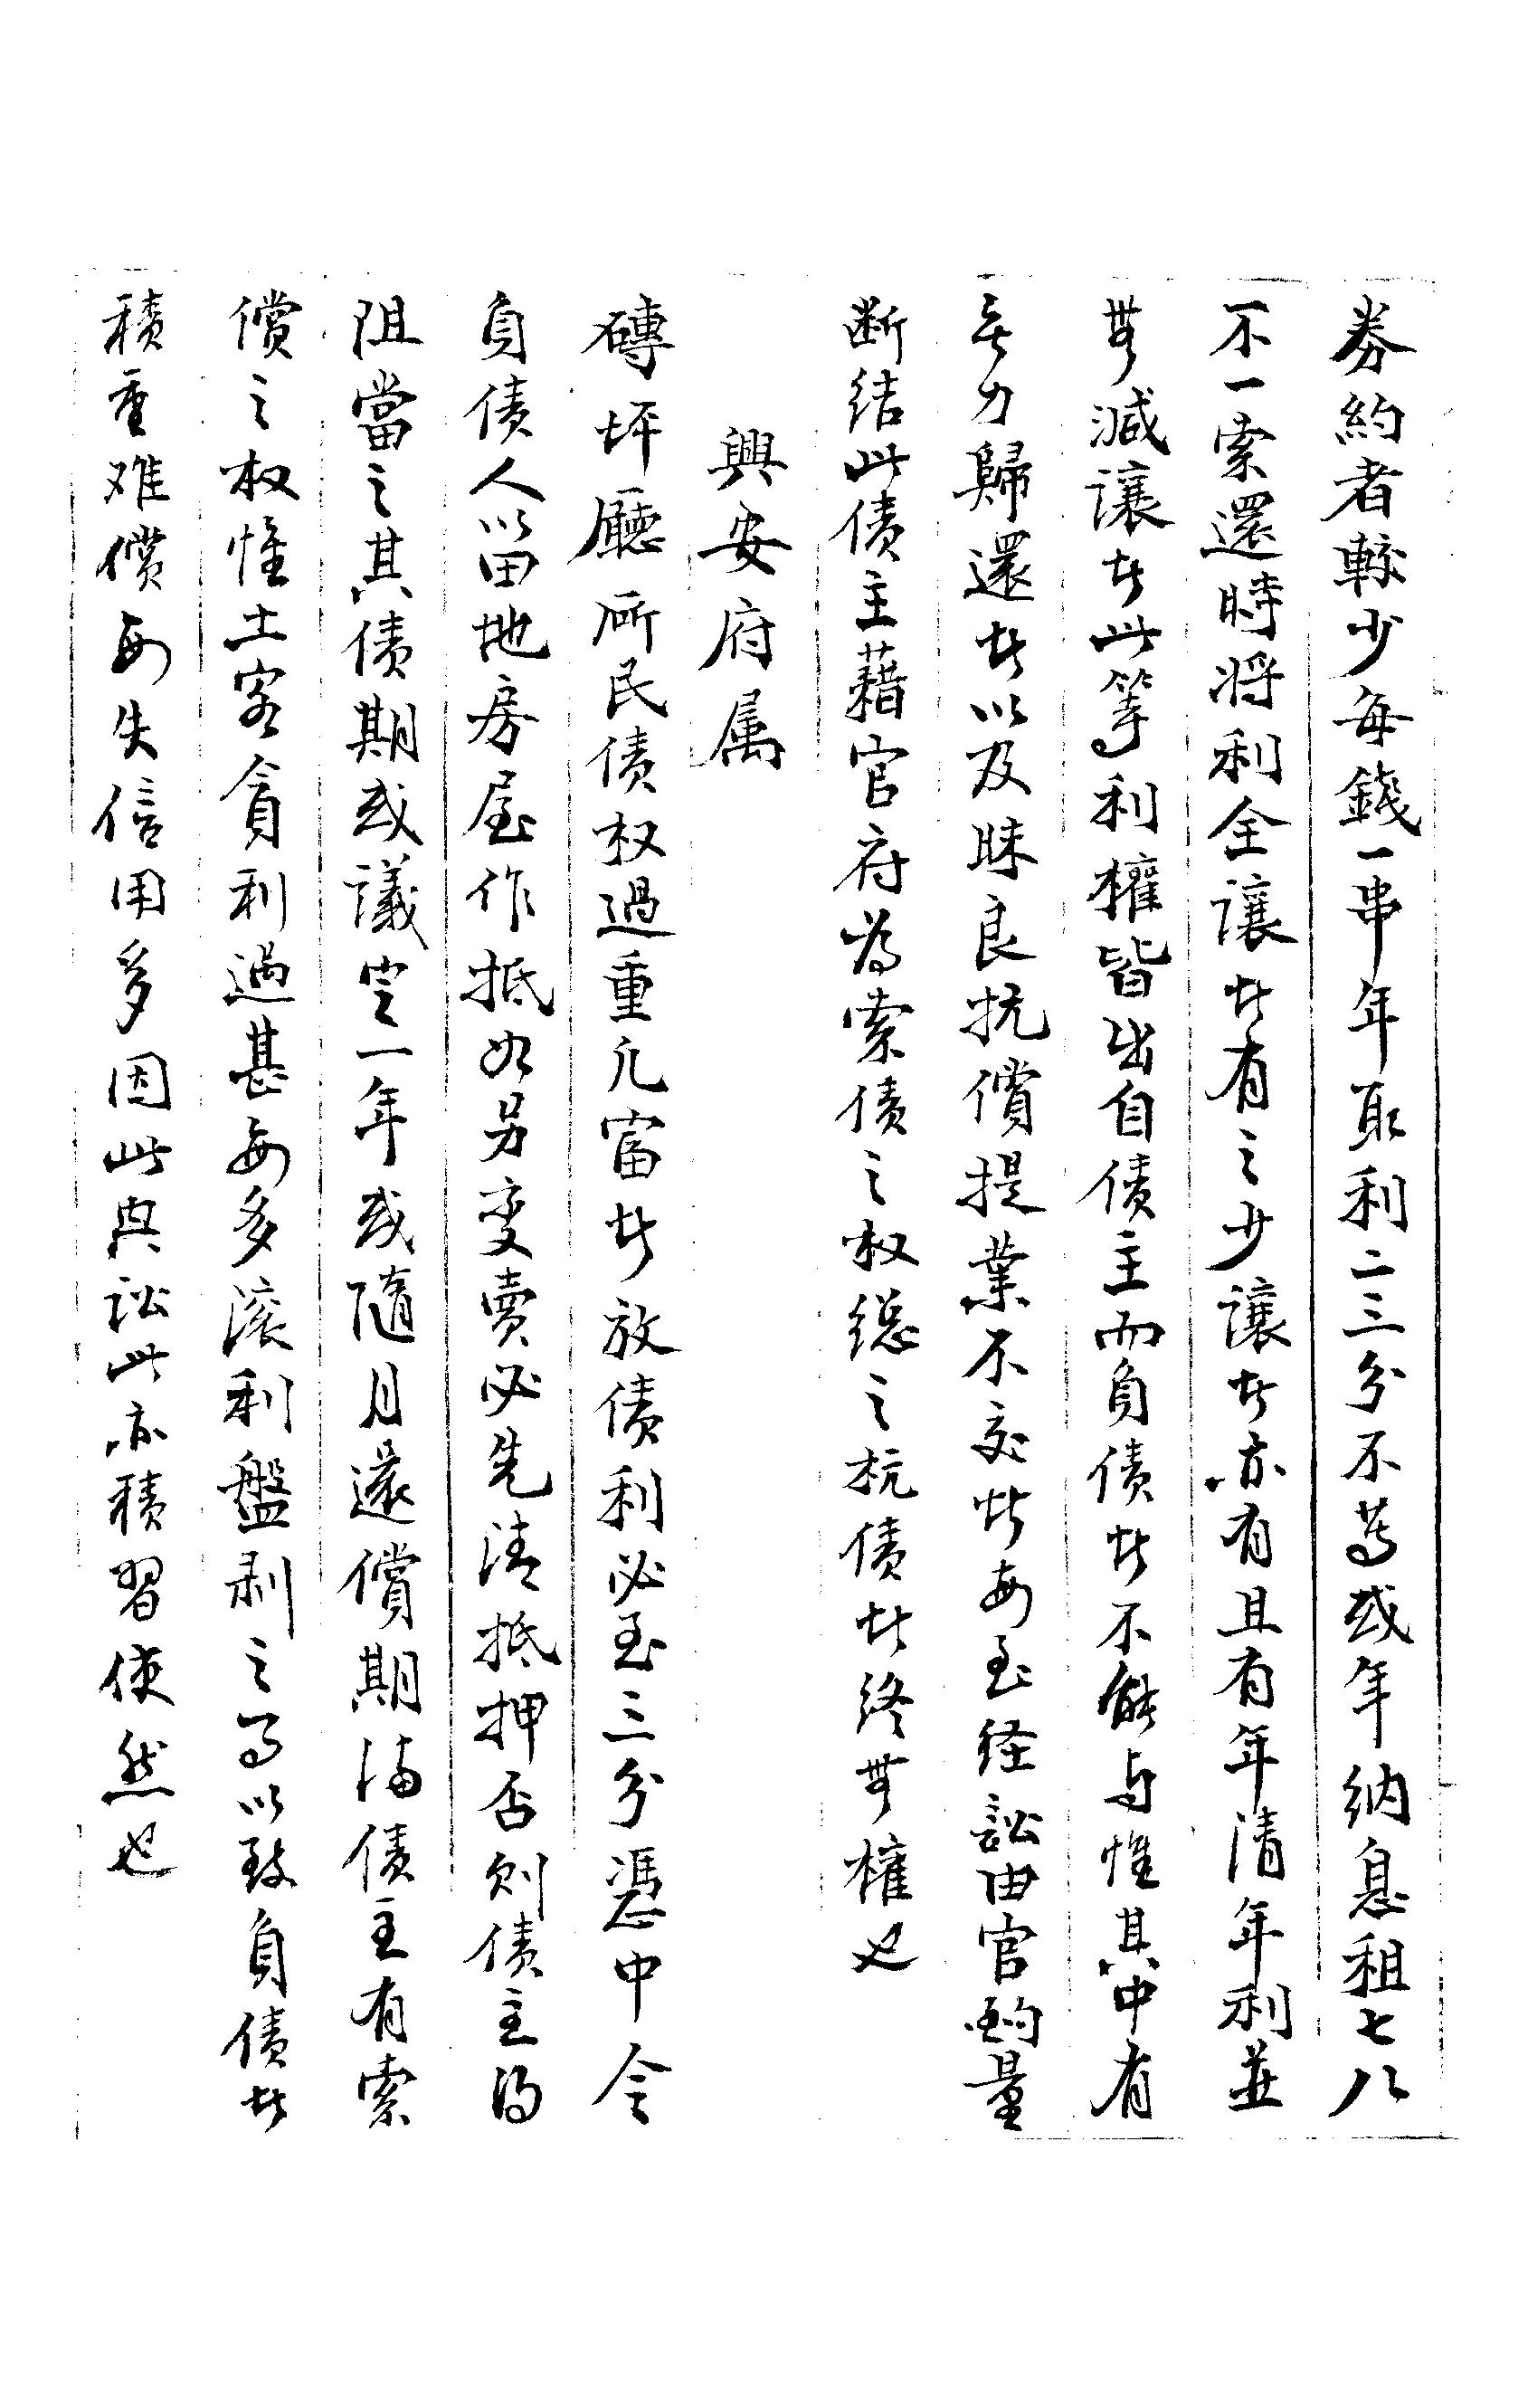 券約者較少每錢一串年取利二三分不等或年納息租七八
不一索還時将利全讓者有之少讓者亦有且有年清年利並
無減讓者此等利權皆出自债主而負债者不能与惟其中有
無力歸還者以及昧良抗償提業不交者每至经訟由官酌量
断结此债主藉官府为索债之权總之抗债者终無權也
興安府属
磚坪廳所民债权過重凡富者放债利必至三分憑中令
負债人以田地房屋作抵如另变賣必先清抵押否则债主得
阻當之其债期或議定一年或隨月還償期满债主有索
償之权惟土客貪利過甚每多滚利盤剥之事以致負债者
積重难償每失信用多因此興訟此亦積習使然也